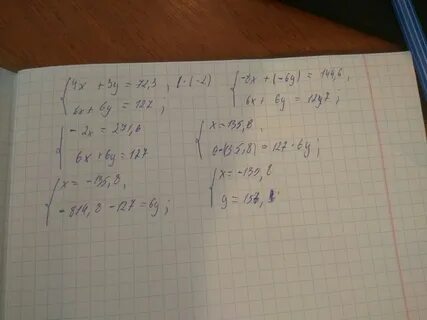 4x + 3y = 72,3 , | · (-2)
6x + 6y = 127 ;
-8x + (-6y) = 144,6 ,
6x + 6y = 127 ;
- 2x = 271,6
6x + 6y = 127
x = 135,8 ,
6·(135,8) = 127 - 6y ;
x = -135,8 ,
- 814,8 - 127 = 6y ;
x = -135,8
y = 157,